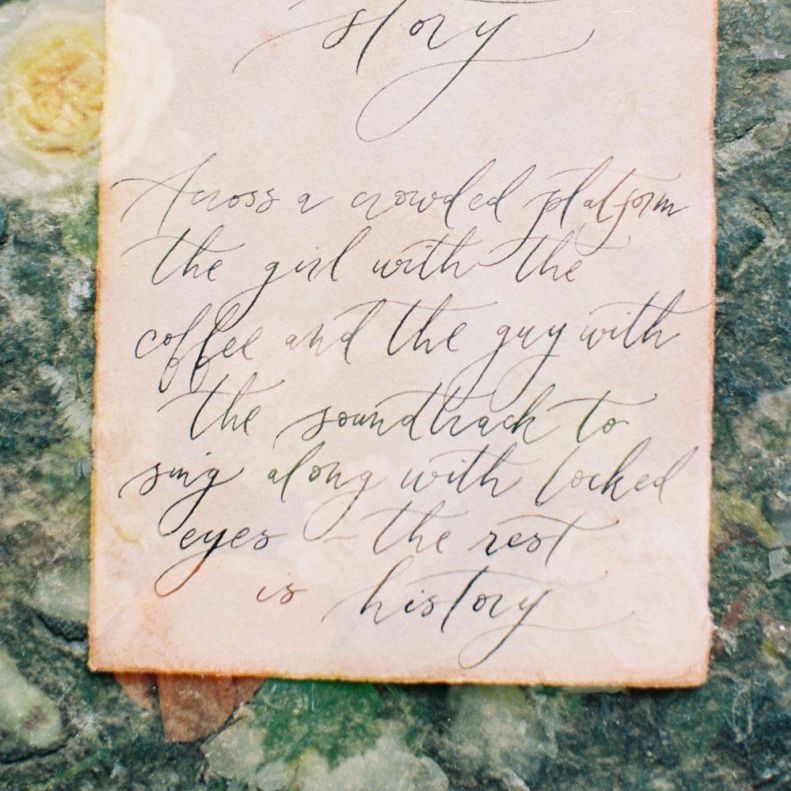 story
Across a crowded platform
the girl with the
coffee and the guy with
the soundtrack to
sing along with locked
eyes - the rest
is history